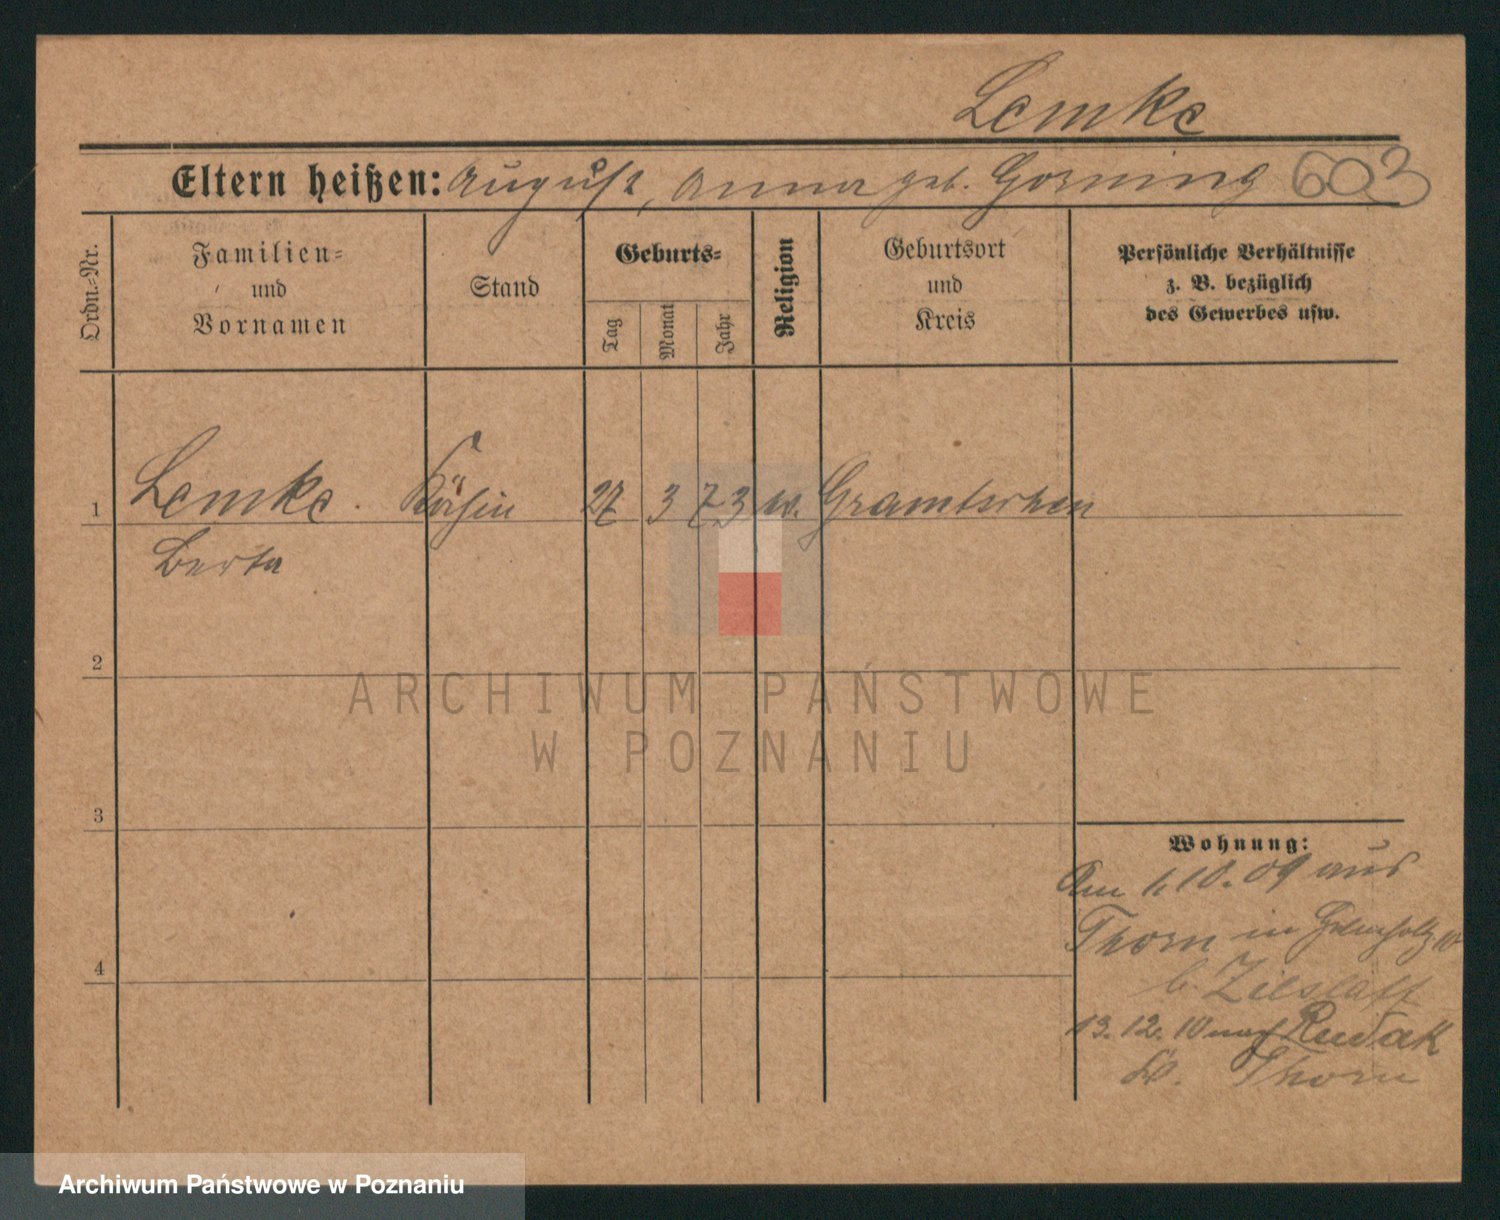 Lemke
Eltern heißen: August, Anna geb. Gorning 603
Ordn.-Nr.
Familien-
und
Vornamen
Stand
Geburts-
Tag
Monat
Jahr
Religion
Geburtsort
und
Kreis
Persönliche Verhältnisse
z. B. bezüglich
des Gewerbes usw.
1 Lemke. Köchin 27 3 73 Gramtschen
Berta
2
ARCHIWUM PAŃSTWOWE
W POZNANIU
3
4
Wohnung:
Am 1.10.09 aus
Thorn in
b. Zieslaff
13. 12. 10 nach Rudak
Thorn
Archiwum Państwowe w Poznaniu